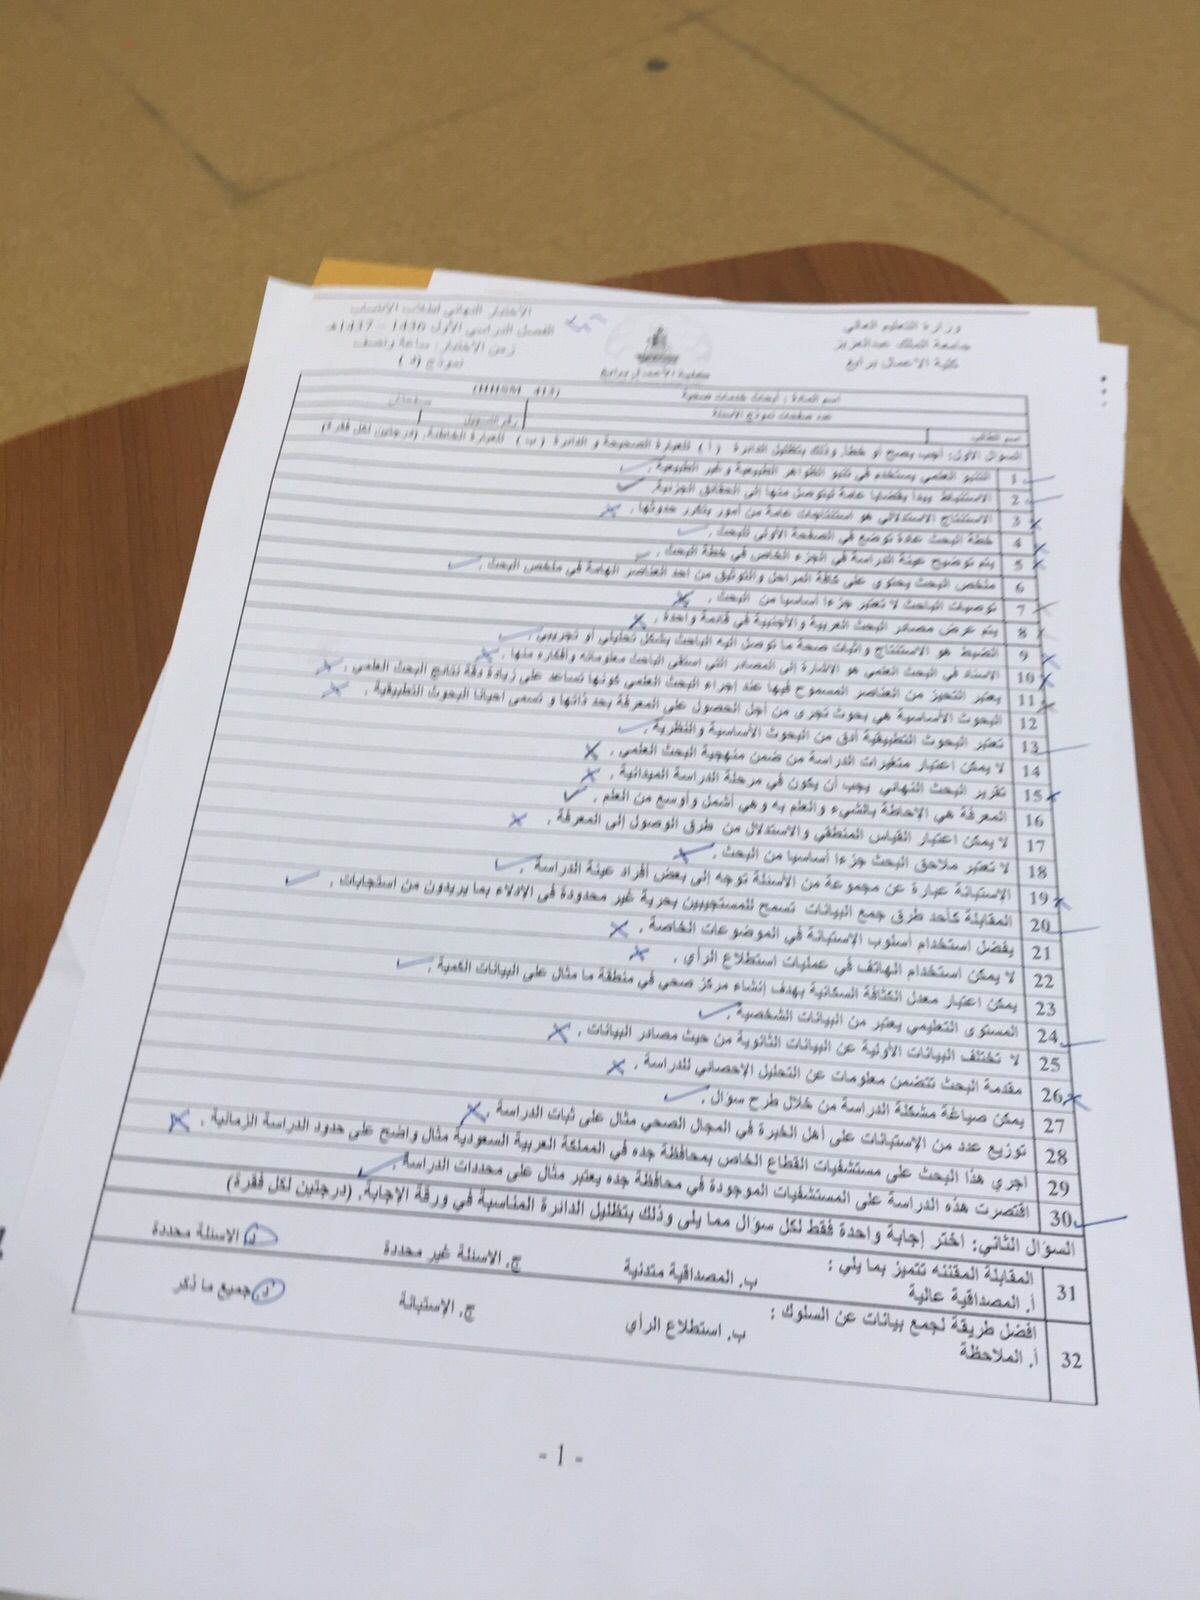 وزارة التعليم العالي
جامعة الملك عبدالعزيز
كلية الاعمال برابغ
كلية الاعمال برابغ
الاختبار النهائي لطلاب الانتساب
الفصل الدراسي الأول 1436 – 1437هـ
زمن الاختبار: ساعة ونصف
نموذج ( د )
اسم المادة : أبحاث خدمات صحية (HHSM 414)
عدد صفحات نموذج الأسئلة صفحتان
اسم الطالب رقم التسجيل
السؤال الأول: أجب بصح أو خطأ، وذلك بتظليل الدائرة ( أ ) للعبارة الصحيحة و الدائرة ( ب ) للعبارة الخاطئة. (درجتين لكل فقرة)
1 التنبؤ العلمي يستخدم في تنبؤ الظواهر الطبيعية و غير الطبيعية.
2 الاستنباط يبدأ بقضايا عامة ليتوصل منها إلى الحقائق الجزئية.
3 الاستنتاج الاستدلالي هو استنتاجات عامة من أمور يتكرر حدوثها .
4 خطة البحث عادة توضع في الصفحة الأولى للبحث.
5 يتم توضيح عينة الدراسة في الجزء الخاص في خطة البحث .
6 ملخص البحث يحتوي على كافة المراحل والتوثيق من احد العناصر الهامة في ملخص البحث .
7 توصيات الباحث لا تعتبر جزءا أساسيا من البحث .
8 يتم عرض مصادر البحث العربية والأجنبية في قائمة واحدة .
9 الضبط هو الاستنتاج و اثبات صحة ما توصل اليه الباحث بشكل تحليلي أو تجريبي .
10 الاسناد في البحث العلمي هو الاشارة إلى المصادر التي استقى الباحث معلوماته وأفكاره منها .
11 يعتبر التحيز من العناصر المسموح فيها عند اجراء البحث العلمي كونها تساعد على زيادة دقة نتائج البحث العلمي .
12 البحوث الأساسية هي بحوث تجرى من أجل الحصول على المعرفة بحد ذاتها و تسمى احيانا البحوث التطبيقية .
13 تعتبر البحوث التطبيقية أدق من البحوث الأساسية والنظرية .
14 لا يمكن اعتبار متغيرات الدراسة من ضمن منهجية البحث العلمي .
15 تقرير البحث النهائي يجب أن يكون في مرحلة الدراسة الميدانية .
16 المعرفة هي الاحاطة بالشيء والعلم به و هي أشمل وأوسع من العلم .
17 لا يمكن اعتبار القياس المنطقي والاستدلال من طرق الوصول إلى المعرفة .
18 لا تعتبر ملاحق البحث جزءا أساسيا من البحث .
19 الإستبانة عبارة عن مجموعة من الأسئلة توجه إلى بعض أفراد عينة الدراسة .
20 المقابلة كأحد طرق جمع البيانات تسمح للمستجيبين بحرية غير محدودة في الإدلاء بما يريدون من استجابات .
21 يفضل استخدام أسلوب الإستبانة في الموضوعات الخاصة .
22 لا يمكن استخدام الهاتف في عمليات استطلاع الرأي .
23 يمكن اعتبار معدل الكثافة السكانية بهدف إنشاء مركز صحي في منطقة ما مثال على البيانات الكمية .
24 المستوى التعليمي يعتبر من البيانات الشخصية .
25 لا تختلف البيانات الأولية عن البيانات الثانوية من حيث مصادر البيانات .
26 مقدمة البحث تتضمن معلومات عن التحليل الإحصائي للدراسة .
27 يمكن صياغة مشكلة الدراسة من خلال طرح سؤال .
28 توزيع عدد من الإستبانات على أهل الخبرة في المجال الصحي مثال على ثبات الدراسة .
29 اجري هذا البحث على مستشفيات القطاع الخاص بمحافظة جده في المملكة العربية السعودية مثال واضح على حدود الدراسة الزمانية .
30 اقتصرت هذه الدراسة على المستشفيات الموجودة في محافظة جده يعتبر مثال على محددات الدراسة .
السؤال الثاني: اختر إجابة واحدة فقط لكل سؤال مما يلي وذلك بتظليل الدائرة المناسبة في ورقة الإجابة. (درجتين لكل فقرة)
31 المقابلة المقننه تتميز بما يلي :
أ. المصداقية عالية ب. المصداقية متدنية ج. الاسئلة غير محددة د. الاسئلة محددة
32 افضل طريقة لجمع بيانات عن السلوك :
أ. الملاحظة ب. استطلاع الرأي ج. الإستبانة د. جميع ما ذكر
- 1 -